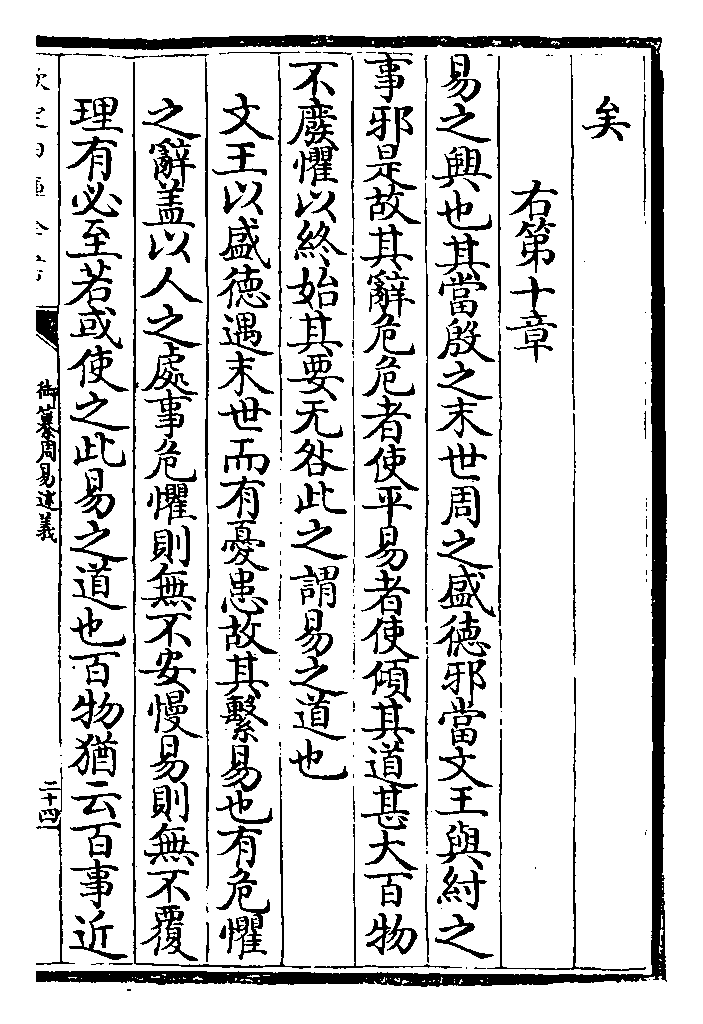 矣
右第十章
易之興也其當殷之末世周之盛徳邪當文王與紂之
事邪是故其辭危危者使平易者使傾其道甚大百物
不廢懼以終始其要无咎此之謂易之道也
文王以盛徳遇末世而有憂患故其繫易也有危懼
之辭盖以人之處事危懼則無不安慢易則無不覆
理有必至若或使之此易之道也百物猶云百事近
欽定四庫全書
御纂周易述義
二十四